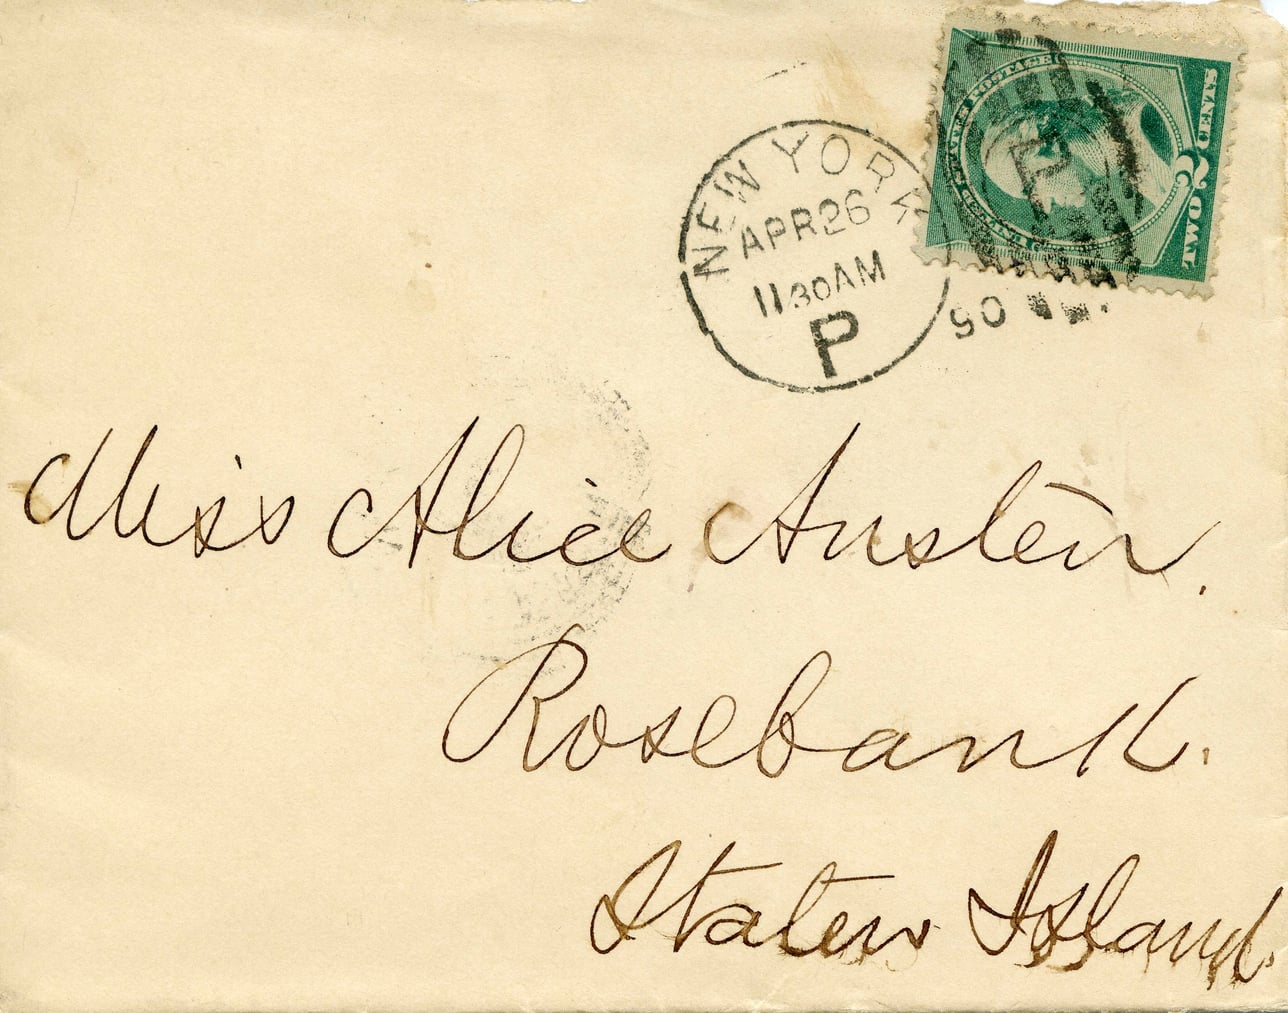 UNITED STATES POSTAGE
TWO 2c CENTS
NEW YORK
APR 26
11 30 AM
P
90
Miss Alice Austen.
Rosebank.
Staten Island.